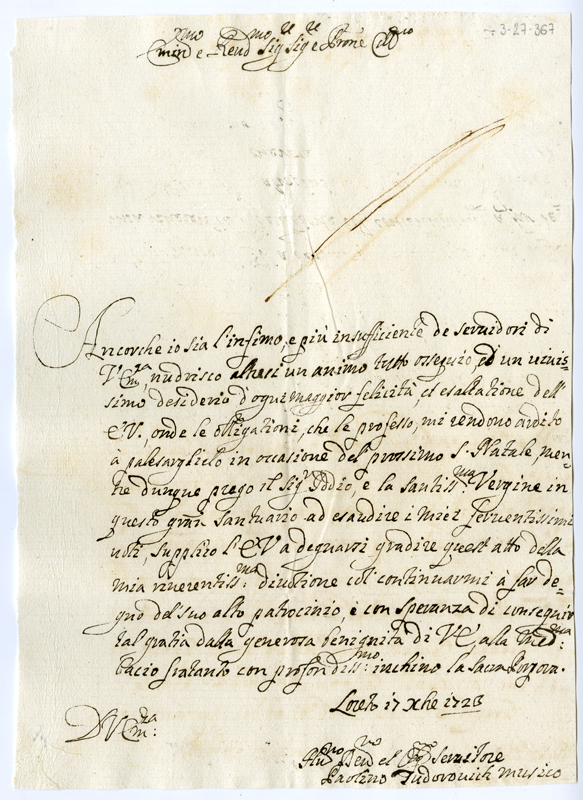 3-27-367
Emin.mo e Rev.mo Sig.re Sig.re e Prone Coll.mo
Ancorche io sia l'infimo, e più insufficiente de servidori di
V. Em.za, nudrisco altresi un animo tutto ossequio, ed un vivis=
simo desiderio d'ogni maggior felicità, et esaltatione dell'
EV. onde le obligationi, che le professo, mi rendono ardito
à palesarglielo in occasione del prossimo S. Natale, men=
tre dunque prego il Sig.r Iddio, e la Santiss.ma Vergine in
questo gran Santuario ad esaudire i miei ferventissimi
voti, supplico l'EV a degnarsi gradire quest'atto della
mia riverentiss.ma: divotione col continuarmi à far de=
gno del suo alto patrocinio e con speranza di conseguir
tal gratia dalla generosa benignità di VE, alla
bacio fratanto con profondiss.mo: inchino la Sacra Porpora.
Loreto 17 Xbre 1723
D V Em.za:
Hu.mo Dev.mo et Servitore
Paolino Tudorovich Musico